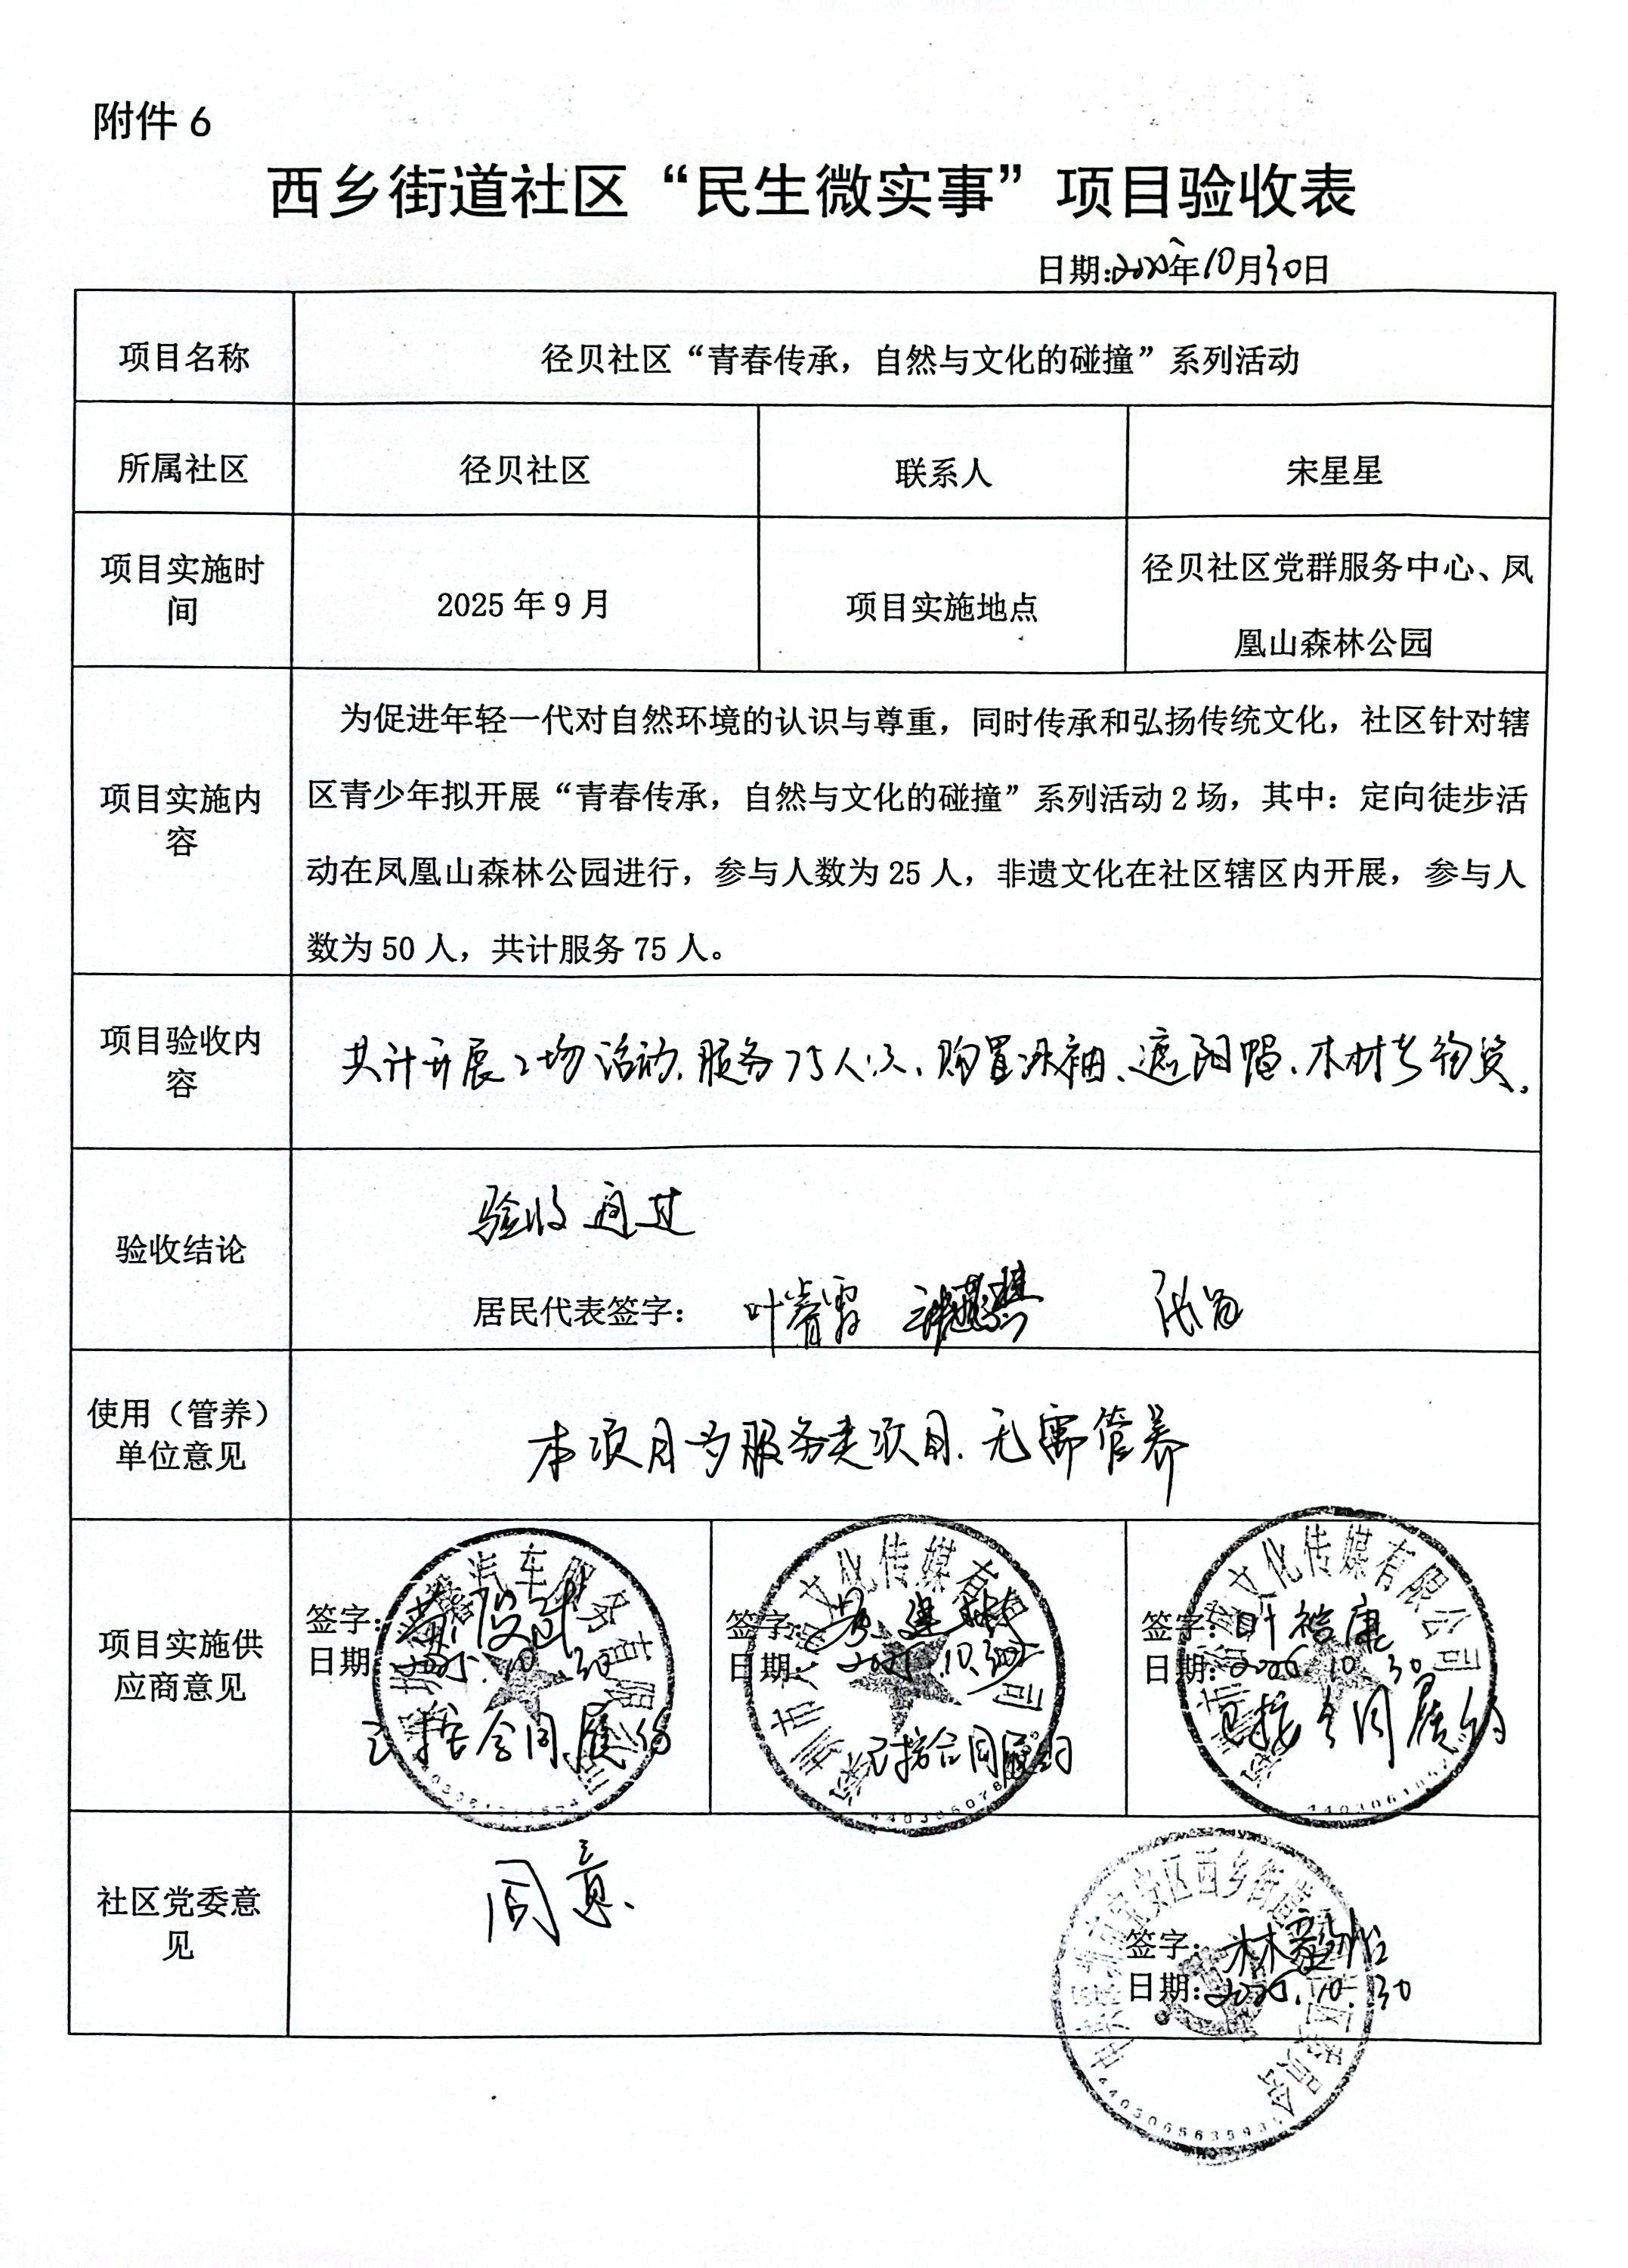 附件 6
西乡街道社区“民生微实事”项目验收表
日期:2025年10月30日
项目名称
径贝社区“青春传承，自然与文化的碰撞”系列活动
所属社区
径贝社区
联系人
宋星星
项目实施时
间
2025 年 9 月
项目实施地点
径贝社区党群服务中心、凤
凰山森林公园
项目实施内
容
为促进年轻一代对自然环境的认识与尊重，同时传承和弘扬传统文化，社区针对辖
区青少年拟开展“青春传承，自然与文化的碰撞”系列活动 2 场，其中：定向徒步活
动在凤凰山森林公园进行，参与人数为 25 人，非遗文化在社区辖区内开展，参与人
数为 50 人，共计服务 75 人。
项目验收内
容
共计开展2场活动、服务75人次、购置冰袖、遮阳帽、木材等物资。
验收结论
验收通过
居民代表签字：
使用（管养）
单位意见
本项目为服务类项目、无需管养
项目实施供
应商意见
汽车服务有限公司
签字：
日期：2025.10.30
已按合同履约
深圳市 文化传媒有限公司
签字：
日期：2025.10.30
已按合同履约
深圳市 文化传媒有限公司
签字：叶裕康
日期：2025.10.30
已按合同履约
社区党委意
见
同意
签字：林毅怡
日期：2025.10.30